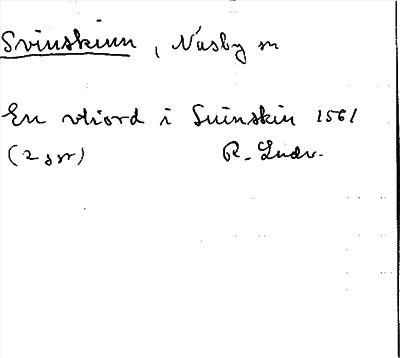 Svinskinn, Näsby sn
En vtiord i Suinskin 1561
(2 ggr) R. Ludv.